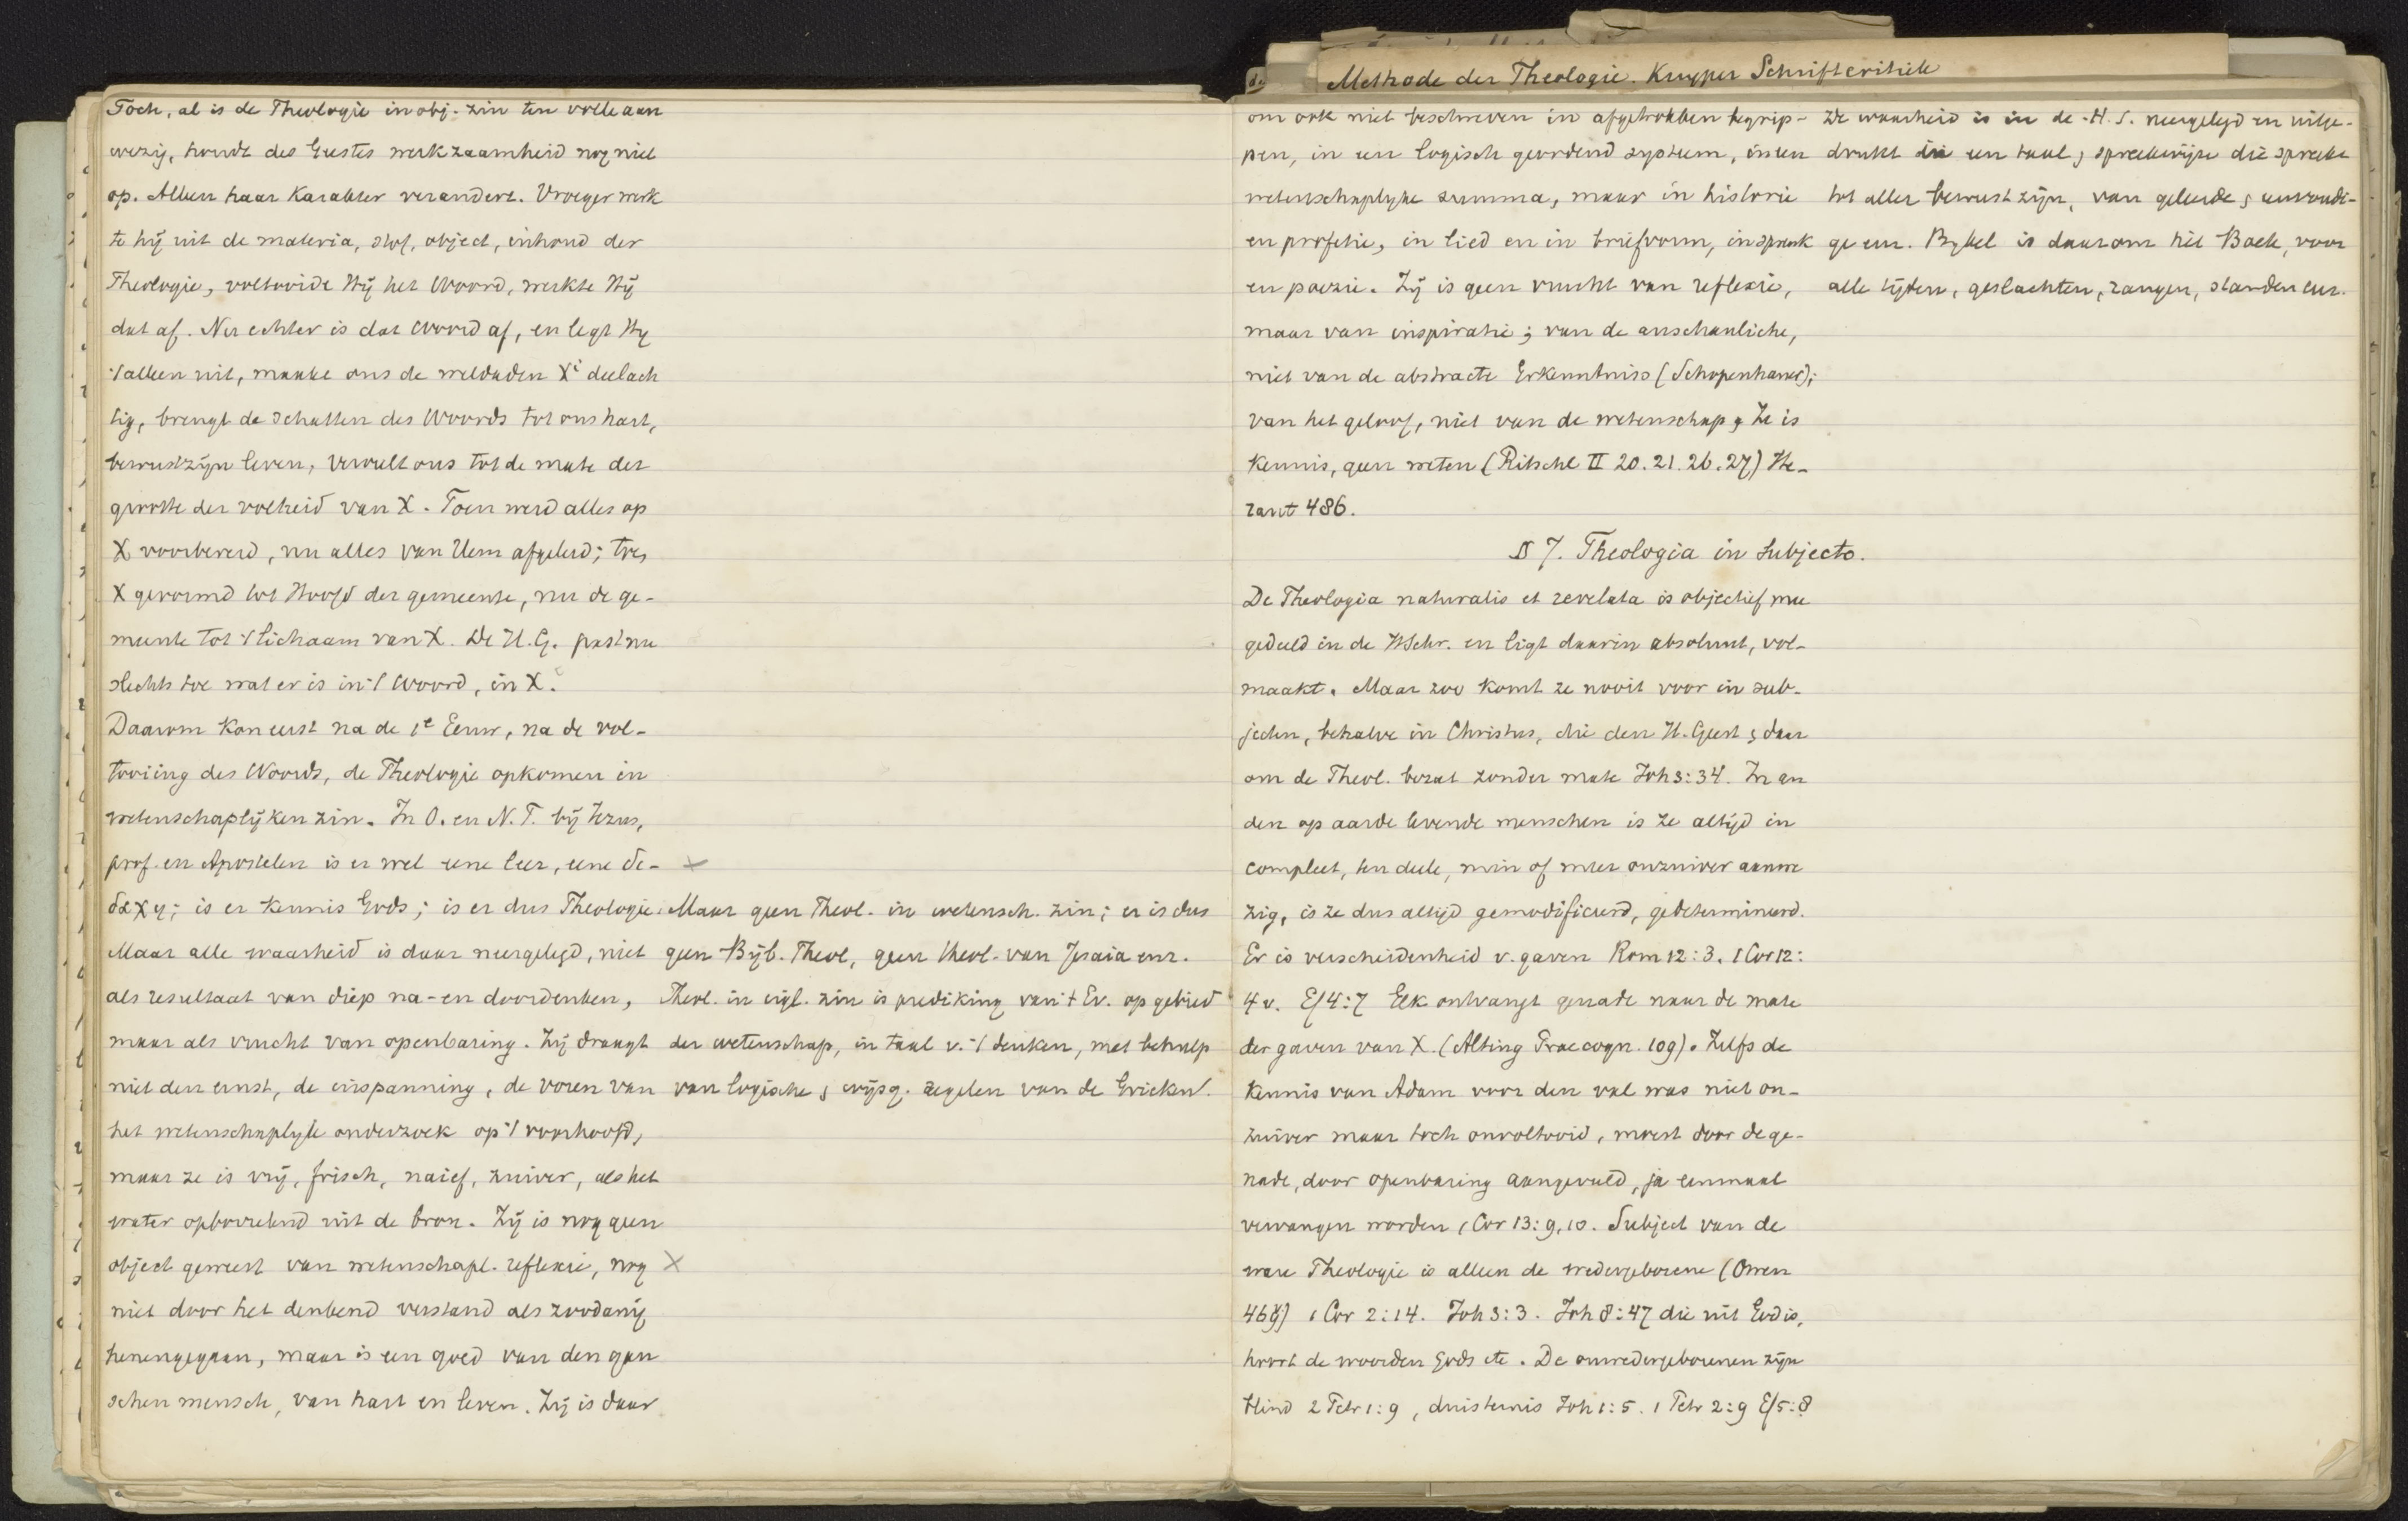 Toch, al is de Theologie in obj. zin ten volle aan
wezig, houdt des Geestes werkzaamheid nog niet
op. Alleen haar karakter verandert. Vroeger werk
te hij uit de materia, stof, object, inhoud der
Theologie, voltooide Hij het Woord, werkte Hij
dat af. Nu echter is dat Woord af, en legt Hij
't alleen uit, maakt ons de weldaden Xi deelach
tig, brengt de schatten des Woords tot ons hart,
bewustzijn leven, vervult ons tot de mate der
grootte der volheid van X. Toen werd alles op
X voorbereid, nu alles van Hem afgeleid; toen
X gevormd tot Hoofd der gemeente, nu de ge-
meente tot 't lichaam van X. De H.G. past nu
slechts toe wat er is in 't Woord, in X.
Daarom kon eerst na de 1e Eeuw, na de vol-
tooiing des Woords, de Theologie opkomen in
wetenschaplijken zin. In O. en N.T. bij Jezus,
prof. en Apostelen is er wel eene leer, eene di- ×
δαχη; is er kennis Gods; is er dus Theologie.
Maar alle waarheid is daar neergelegd, niet
als resultaat van diep na- en doordenken,
maar als vrucht van openbaring. Zij draagt
niet den ernst, de inspanning, de voren van
het wetenschaplyk onderzoek op 't voorhoofd,
maar ze is vrij, frisch, naief, zuiver, als het
water opborrelend uit de bron. Zij is nog geen
object geweest van wetenschapl. reflexie, nog ×
niet door het denkend verstand als zoodanig
henengegaan, maar is een goed van den gan
schen mensch, van hart en leven. Zij is daar
Maar geen Theol. in wetensch. zin; er is dus
geen Bijb. Theol, geen theol. van Jesaia enz.
Theol. in eigl. zin is prediking van 't Ev. op gebied
der wetenschap, in taal v. 't denken, met behulp
van logische & wijsg. regelen van de Grieken.
de Methode der Theologie. Kuyper Schriftcritiek
om ook niet beschreven in afgetrokken begrip-
pen, in een logisch geordend systeem, in een
wetenschaplyke summa, maar in historie
en profetie, in lied en in briefvorm, in spreuk
en poezie. Zij is geen vrucht van reflexie,
maar van inspiratie; van de anschauliche,
niet van de abstracte Erkenntniss (Schopenhauer);
van het geloof, niet van de wetenschap; Ze is
kennis, geen weten (Ritschl II 20. 21. 26. 27) He-
raut 486.
De waarheid is in de H.S. neergelegd en uitge-
drukt in een taal & spreekwijze die spreekt
tot aller bewustzijn, van geleerde & eenvoudi-
ge enz. Bybel is daarom hét Boek, voor
alle tijden, geslachten, rangen, standen enz.
§ 7. Theologia in Subjecto.
De Theologia naturalis et revelata is objectief mee
gedeeld in de HSchr. en ligt daarin absoluut, vol-
maakt. Maar zoo komt ze nooit voor in sub-
jecten, behalve in Christus, die den H. Geest & daar
om de Theol. bezat zonder mate Joh 3:34. In an
den op aarde levende menschen is ze altijd in
compleet, ten deele, min of meer onzuiver aanwe
zig, is ze dus altijd gemodificeerd, gedetermineerd.
Er is verscheidenheid v. gaven Rom 12:3. 1 Cor 12:
4 v. Ef 4:7 Elk ontvangt genade naar de mate
der gaven van X. (Alting Praecogn. 109). Zelfs de
kennis van Adam voor den val was niet on-
zuiver maar toch onvoltooid, moest door de ge-
nade, door openbaring aangevuld, ja eenmaal
vervangen worden 1 Cor 13:9,10. Subject van de
ware Theologie is alleen de wedergeborene (Owen
469) 1 Cor 2:14. Joh 3:3. Joh 8:47 die uit God is,
hoort de woorden Gods etc. De onwedergeborenen zijn
blind 2 Petr 1:9, duisternis Joh 1:5. 1 Petr 2:9 Ef 5:8